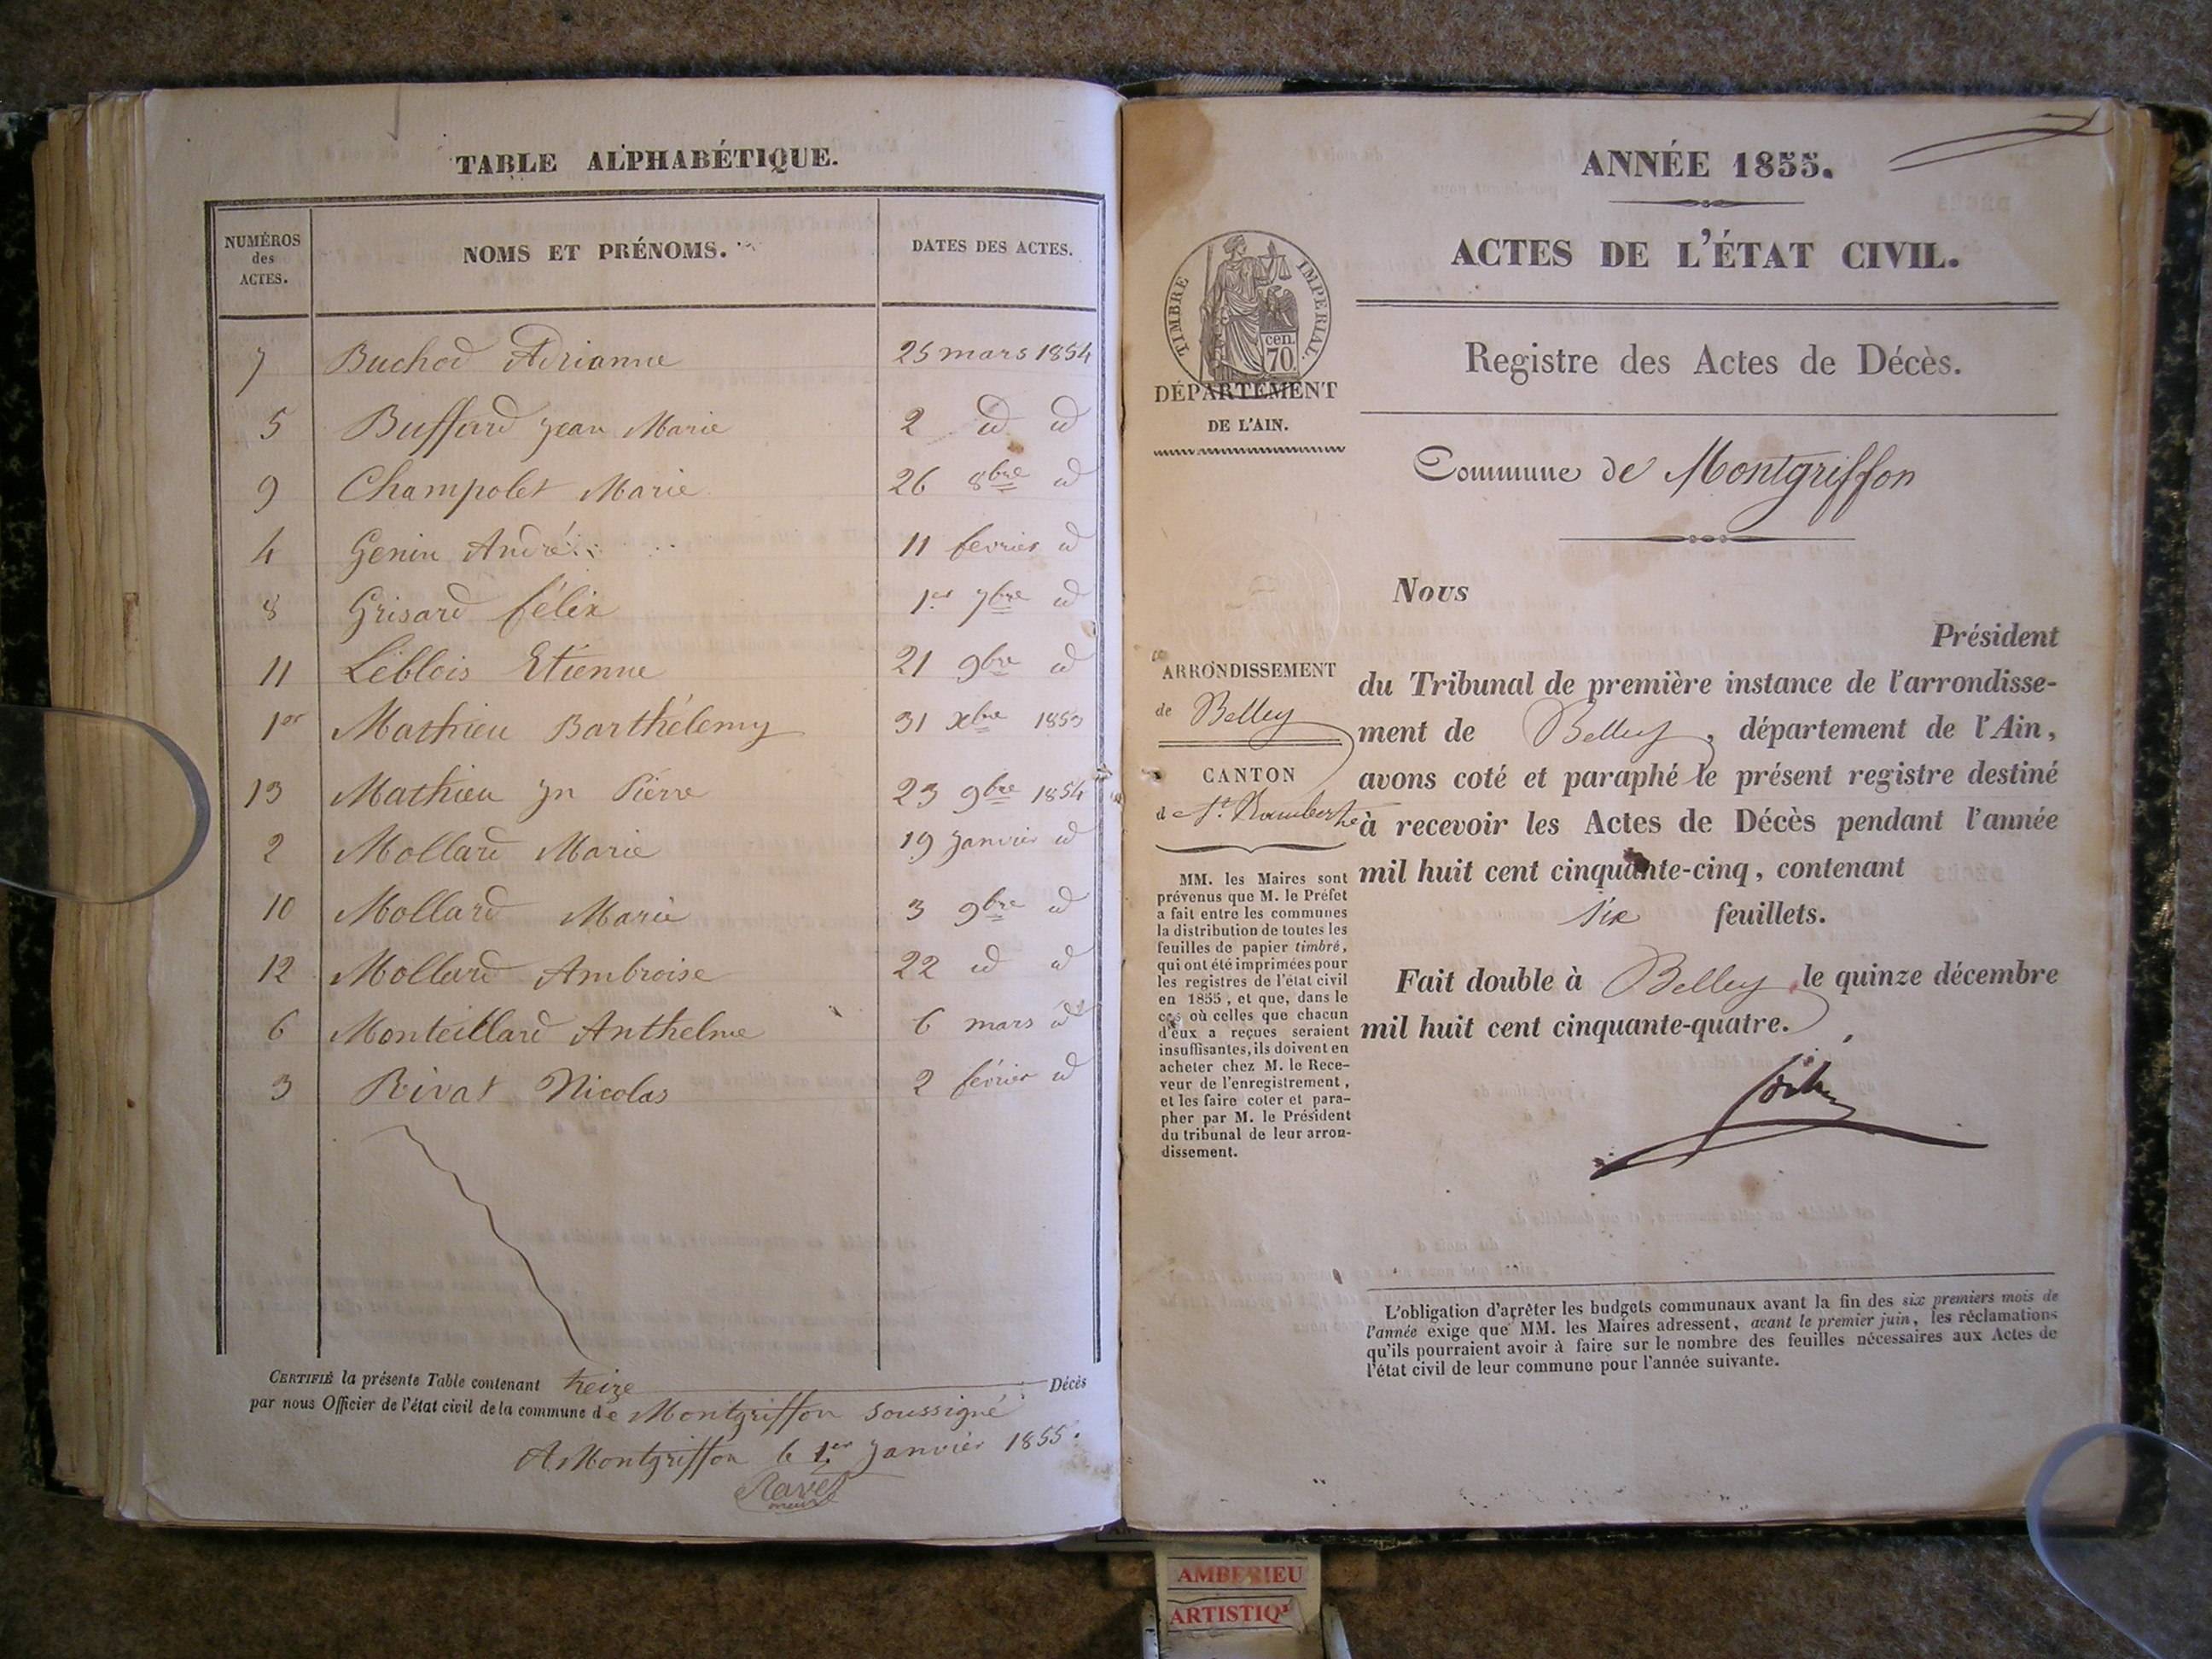 TABLE ALPHABÉTIQUE.
NUMÉROS des ACTES. NOMS ET PRÉNOMS. DATES DES ACTES.
7 Buchod Adrianne 25 mars 1854
5 Buffard Jean Marie 2 id id
9 Champolet Marie 26 8bre id
4 Genin André 11 fevrier id
8 Grisard félix 1er 7bre id
11 Léblois Etienne 21 9bre id
1er Mathieu Barthélemy 31 xbre 1853
13 Mathieu Jn Pierre 23 9bre 1854
2 Mollard Marie 19 Janvier id
10 Mollard Marie 3 9bre id
12 Mollard Ambroise 22 id id
6 Monteillard Anthelme 6 mars id
3 Rivat Nicolas 2 février id
CERTIFIÉ la présente Table contenant treize Décès
par nous Officier de l'état civil de la commune de Montgriffon soussigné
A Montgriffon le 1er Janvier 1855.
Ravet
maire
ANNÉE 1855.
ACTES DE L'ÉTAT CIVIL.
TIMBRE IMPERIAL.
cen.
70.
DÉPARTEMENT
DE L'AIN.
Registre des Actes de Décès.
Commune de Montgriffon
ARRONDISSEMENT
de Belley
CANTON
de St. Rambert
MM. les Maires sont
prévenus que M. le Préfet
a fait entre les communes
la distribution de toutes les
feuilles de papier timbré,
qui ont été imprimées pour
les registres de l'état civil
en 1855, et que, dans le
cas où celles que chacun
d'eux a reçues seraient
insuffisantes, ils doivent en
acheter chez M. le Rece-
veur de l'enregistrement,
et les faire coter et para-
pher par M. le Président
du tribunal de leur arron-
dissement.
Nous
Président
du Tribunal de première instance de l'arrondisse-
ment de Belley, département de l'Ain,
avons coté et paraphé le présent registre destiné
à recevoir les Actes de Décès pendant l'année
mil huit cent cinquante-cinq, contenant
six feuillets.
Fait double à Belley, le quinze décembre
mil huit cent cinquante-quatre.
L'obligation d'arrêter les budgets communaux avant la fin des six premiers mois de
l'année exige que MM. les Maires adressent, avant le premier juin, les réclamations
qu'ils pourraient avoir à faire sur le nombre des feuilles nécessaires aux Actes de
l'état civil de leur commune pour l'année suivante.
AMBERIEU
ARTISTIQ